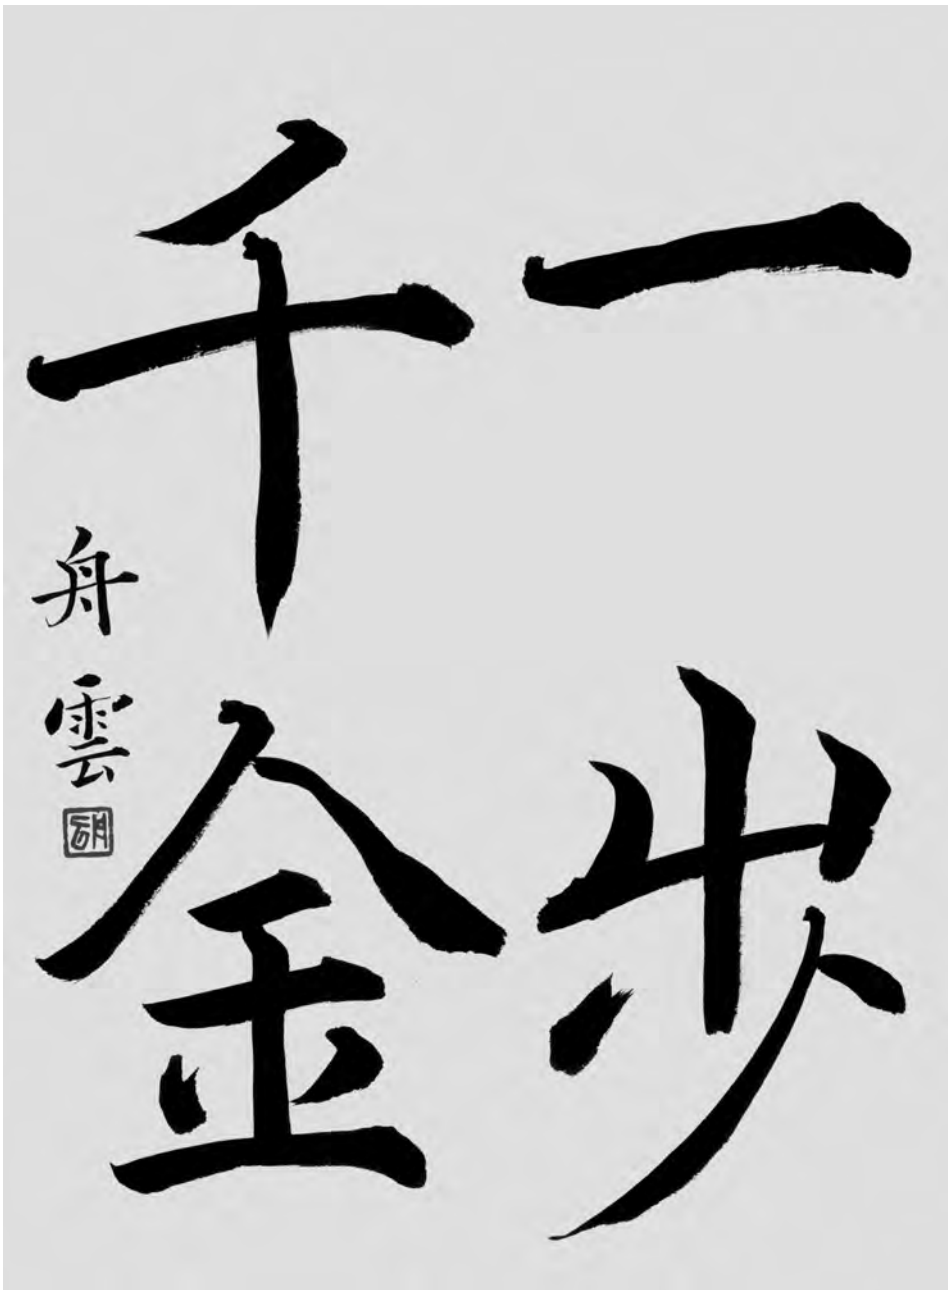 一歩
千金
舟雲